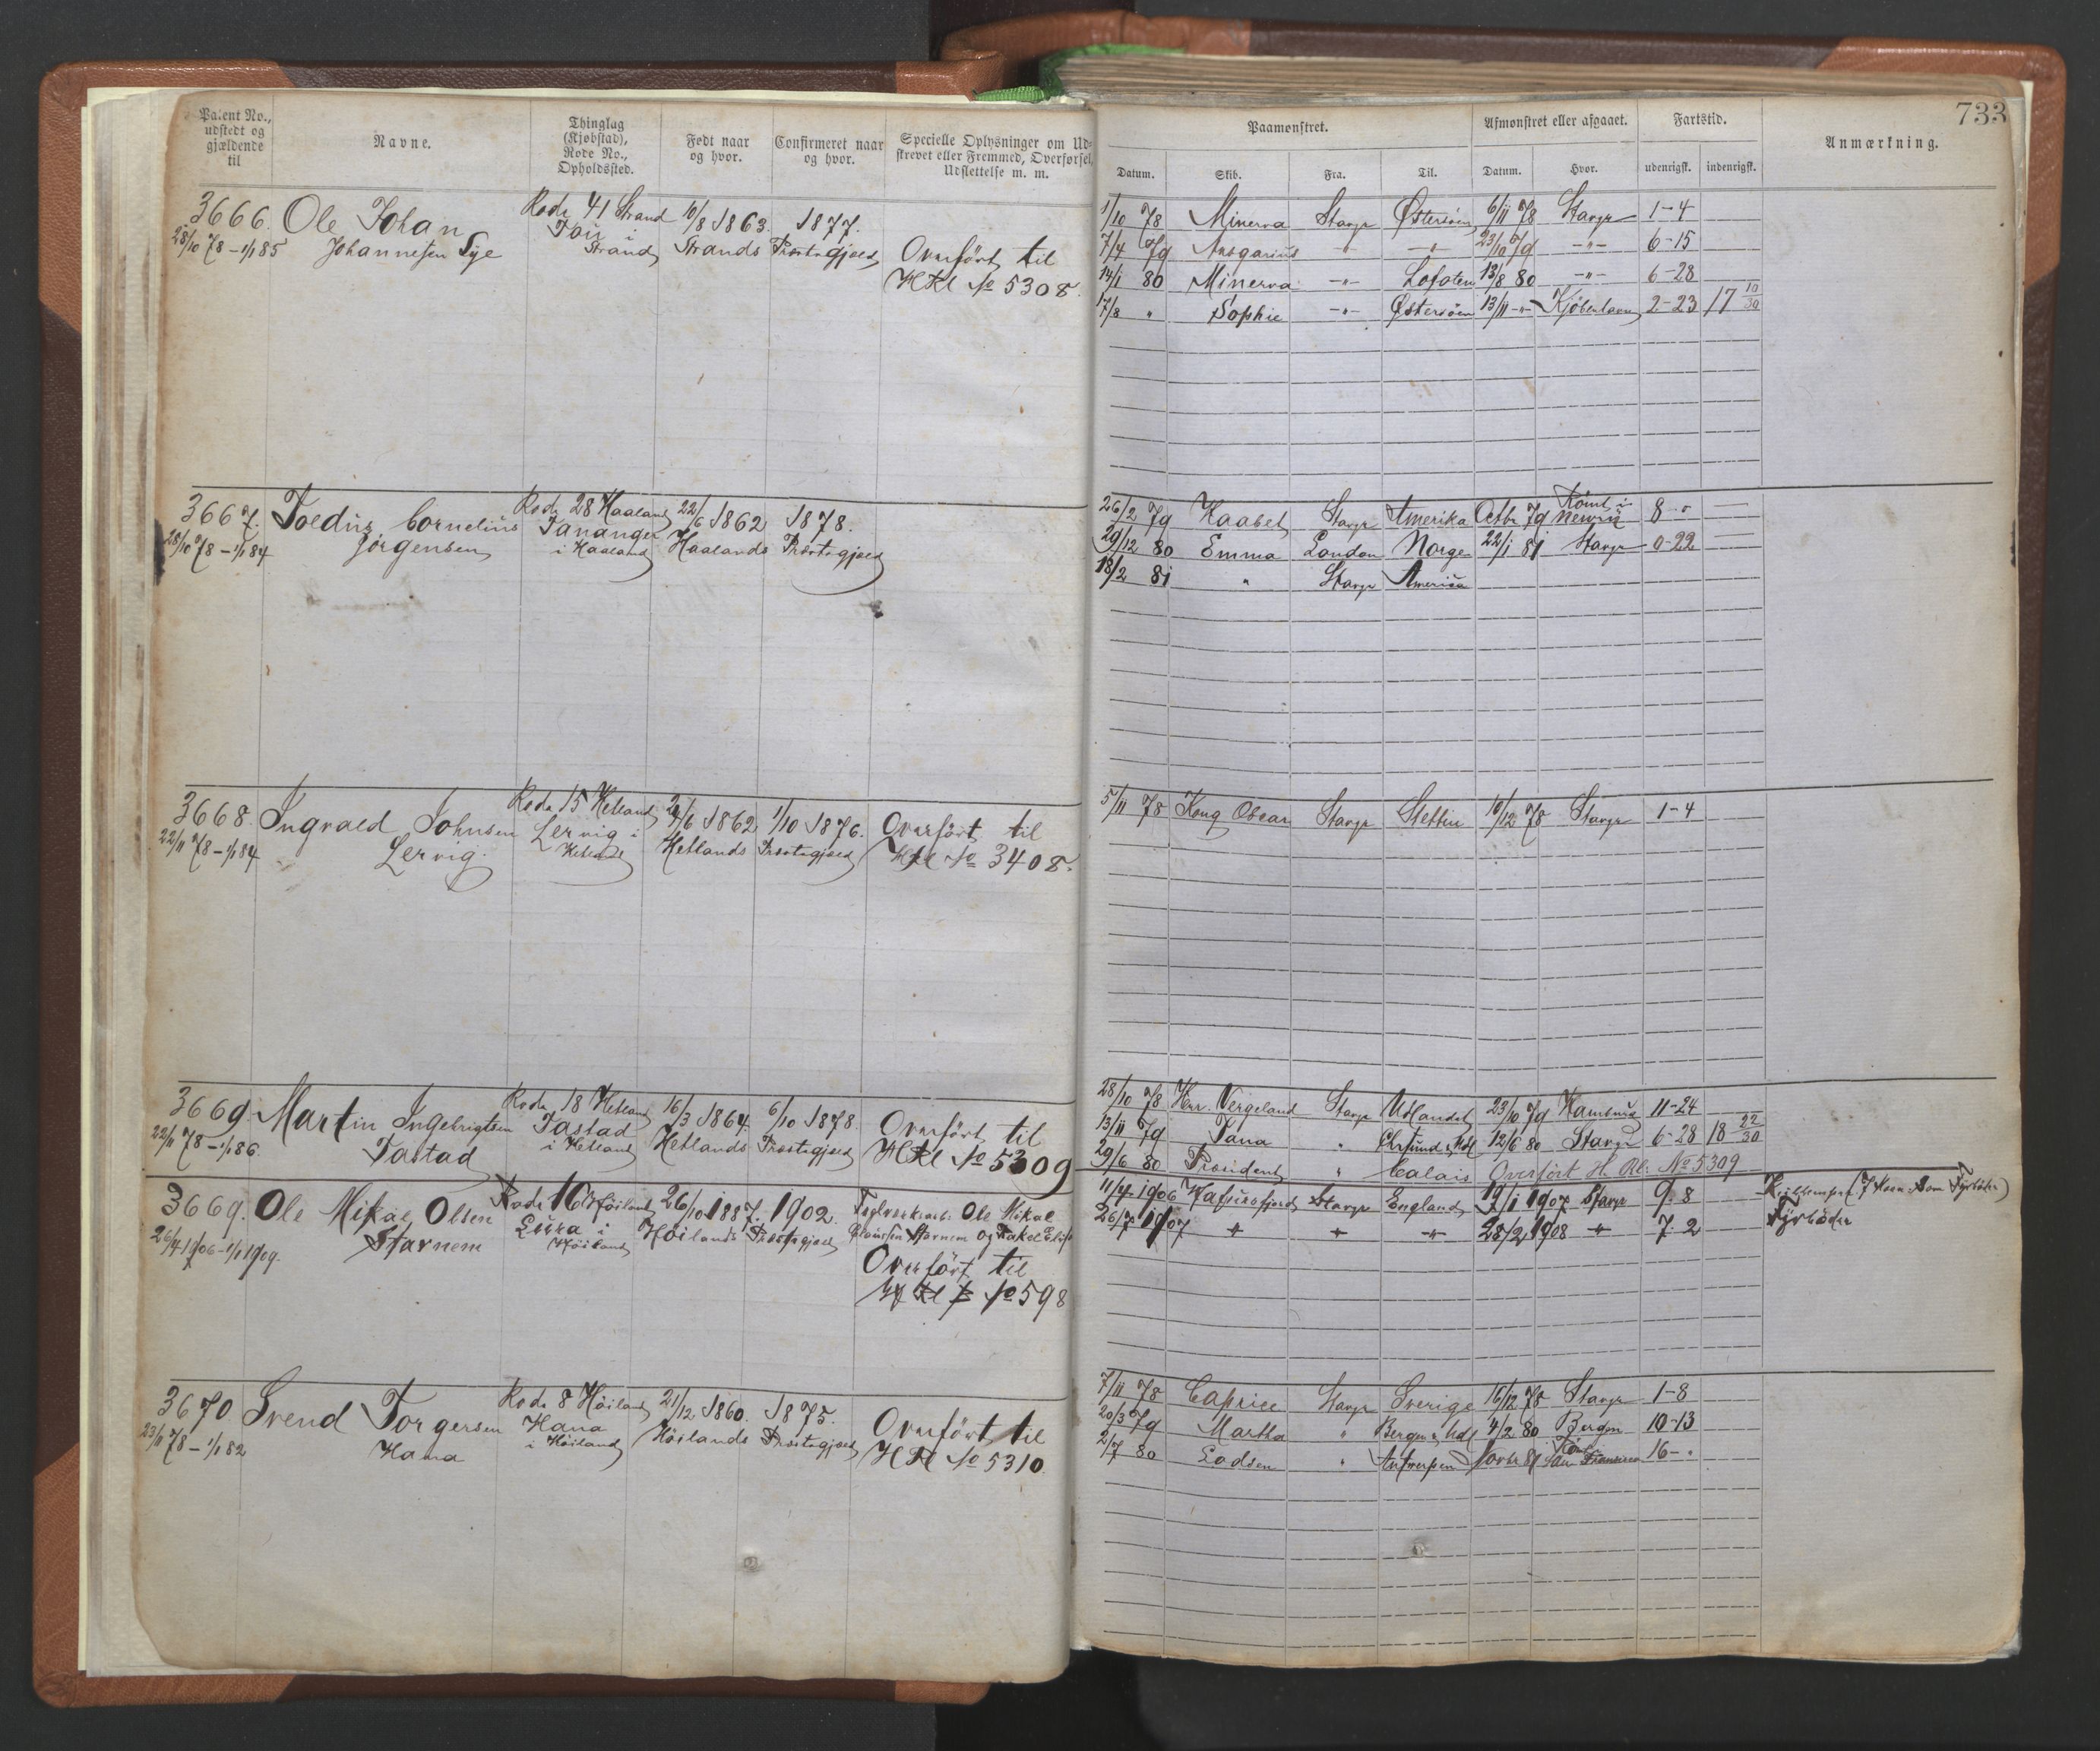 733
Patent No., udstedt og gjældende til
Navne.
Thinglag (Kjøbstad), Rode No., Opholdssted.
Født naar og hvor.
Confirmeret naar og hvor.
Specielle Oplysninger om Udskrevet eller Fremmed, Overførsel, Udslettelse m. m.
Paamønstret.
Afmønstret eller afgaaet.
Fartstid.
Anmærkning.
Datum.
Skib.
Fra.
Til.
Datum.
Hvor.
udenrigsk.
indenrigsk.
3666. Ole Johan Rode 41 Strand 10/8 1863. 1877.
28/10 78 – 1/1 85 Johannesen Tye Tou i Strand Strands Præstegjæld Overført til
HRl № 5308.
1/10 78 Minerva Stavgr Østersøen 6/11 78 Stavgr 1-4
7/4 79 Ansgarius -"- -"- 23/10 79 -"- 6-15
14/1 80 Minerva -"- Lofoten 13/8 80 -"- 6-28
17/8 " Sophie -"- Østersøen 13/11 -"- Kjøbenhavn 2-23 17 10/30
3667. Toedus Cornelius Rode 28 Haaland 22/6 1862 1878.
28/10 78 – 1/1 84 Jørgensen Tananger i Haaland Haalands Præstegjæld
26/2 79 Kaabel Stavgr Amerika Octbr 79 Römt i 8 - "
29/12 80 Emma London Norge 22/1 81 Stavgr 0-22
18/2 81 " Stavgr America
3668. Ingvald Johnsen Rode 15 Hetland 1862 1/10 1876. Overført til
22/11 78 – 1/1 84 Lervig. Lervig i Hetland Hetlands Præstegjæld HRl № 3408.
5/11 78 Kong Oscar Stavgr Stettin 10/12 78 Stavgr 1-4
3669. Martin Ingebrigtsen Rode 18 Hetland 16/3 1864. 6/10 1878. Overført til
22/11 78 – 1/1 86. Tastad Tastad i Hetland Hetlands Præstegjæld HRl № 5309
28/10 78 Hen. Vergeland Stavgr Udlandet 23/10 79 Hamburg 11-24
13/11 79 Tana " Chrsund & Udl 12/6 80 Stavgr 6-28 18 22/30
29/6 80 President " Calais Overført H. Rl. № 5309
3669. Ole Mikal Olsen Rode 16 Høiland 26/10 1887. 1902. Ole Mikal
26/4 1906 – 1/1 1909. Starnem Lura i Høiland Høilands Præstegjæld Starnem og Rakel
Overført til
№ 598
11/4 1906 Hafursfjord Stavgr England 19/1 1907 Stavgr 9. 8
1907 " " -"- 28/2 1908 " 7. 2 Fyrbøder
3670. Svend Torgersen Rode 8 Høiland 21/12 1860. 1875. Overført til
23/11 78 – 1/1 82 Hana Hana i Høiland Høilands Præstegjæld HRl № 5310.
7/11 78 Caprice Stavgr Sverige 16/12 78 Stavgr 1-8
20/3 79 Martha " Bergen & Udl 4/2 80 Bergen 10-13
2/7 80 " Antwerpen San Francisco 16- "